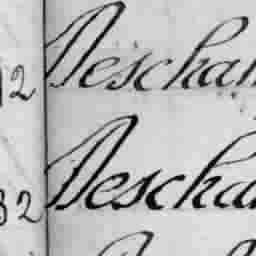 12 Descham
32 Descha